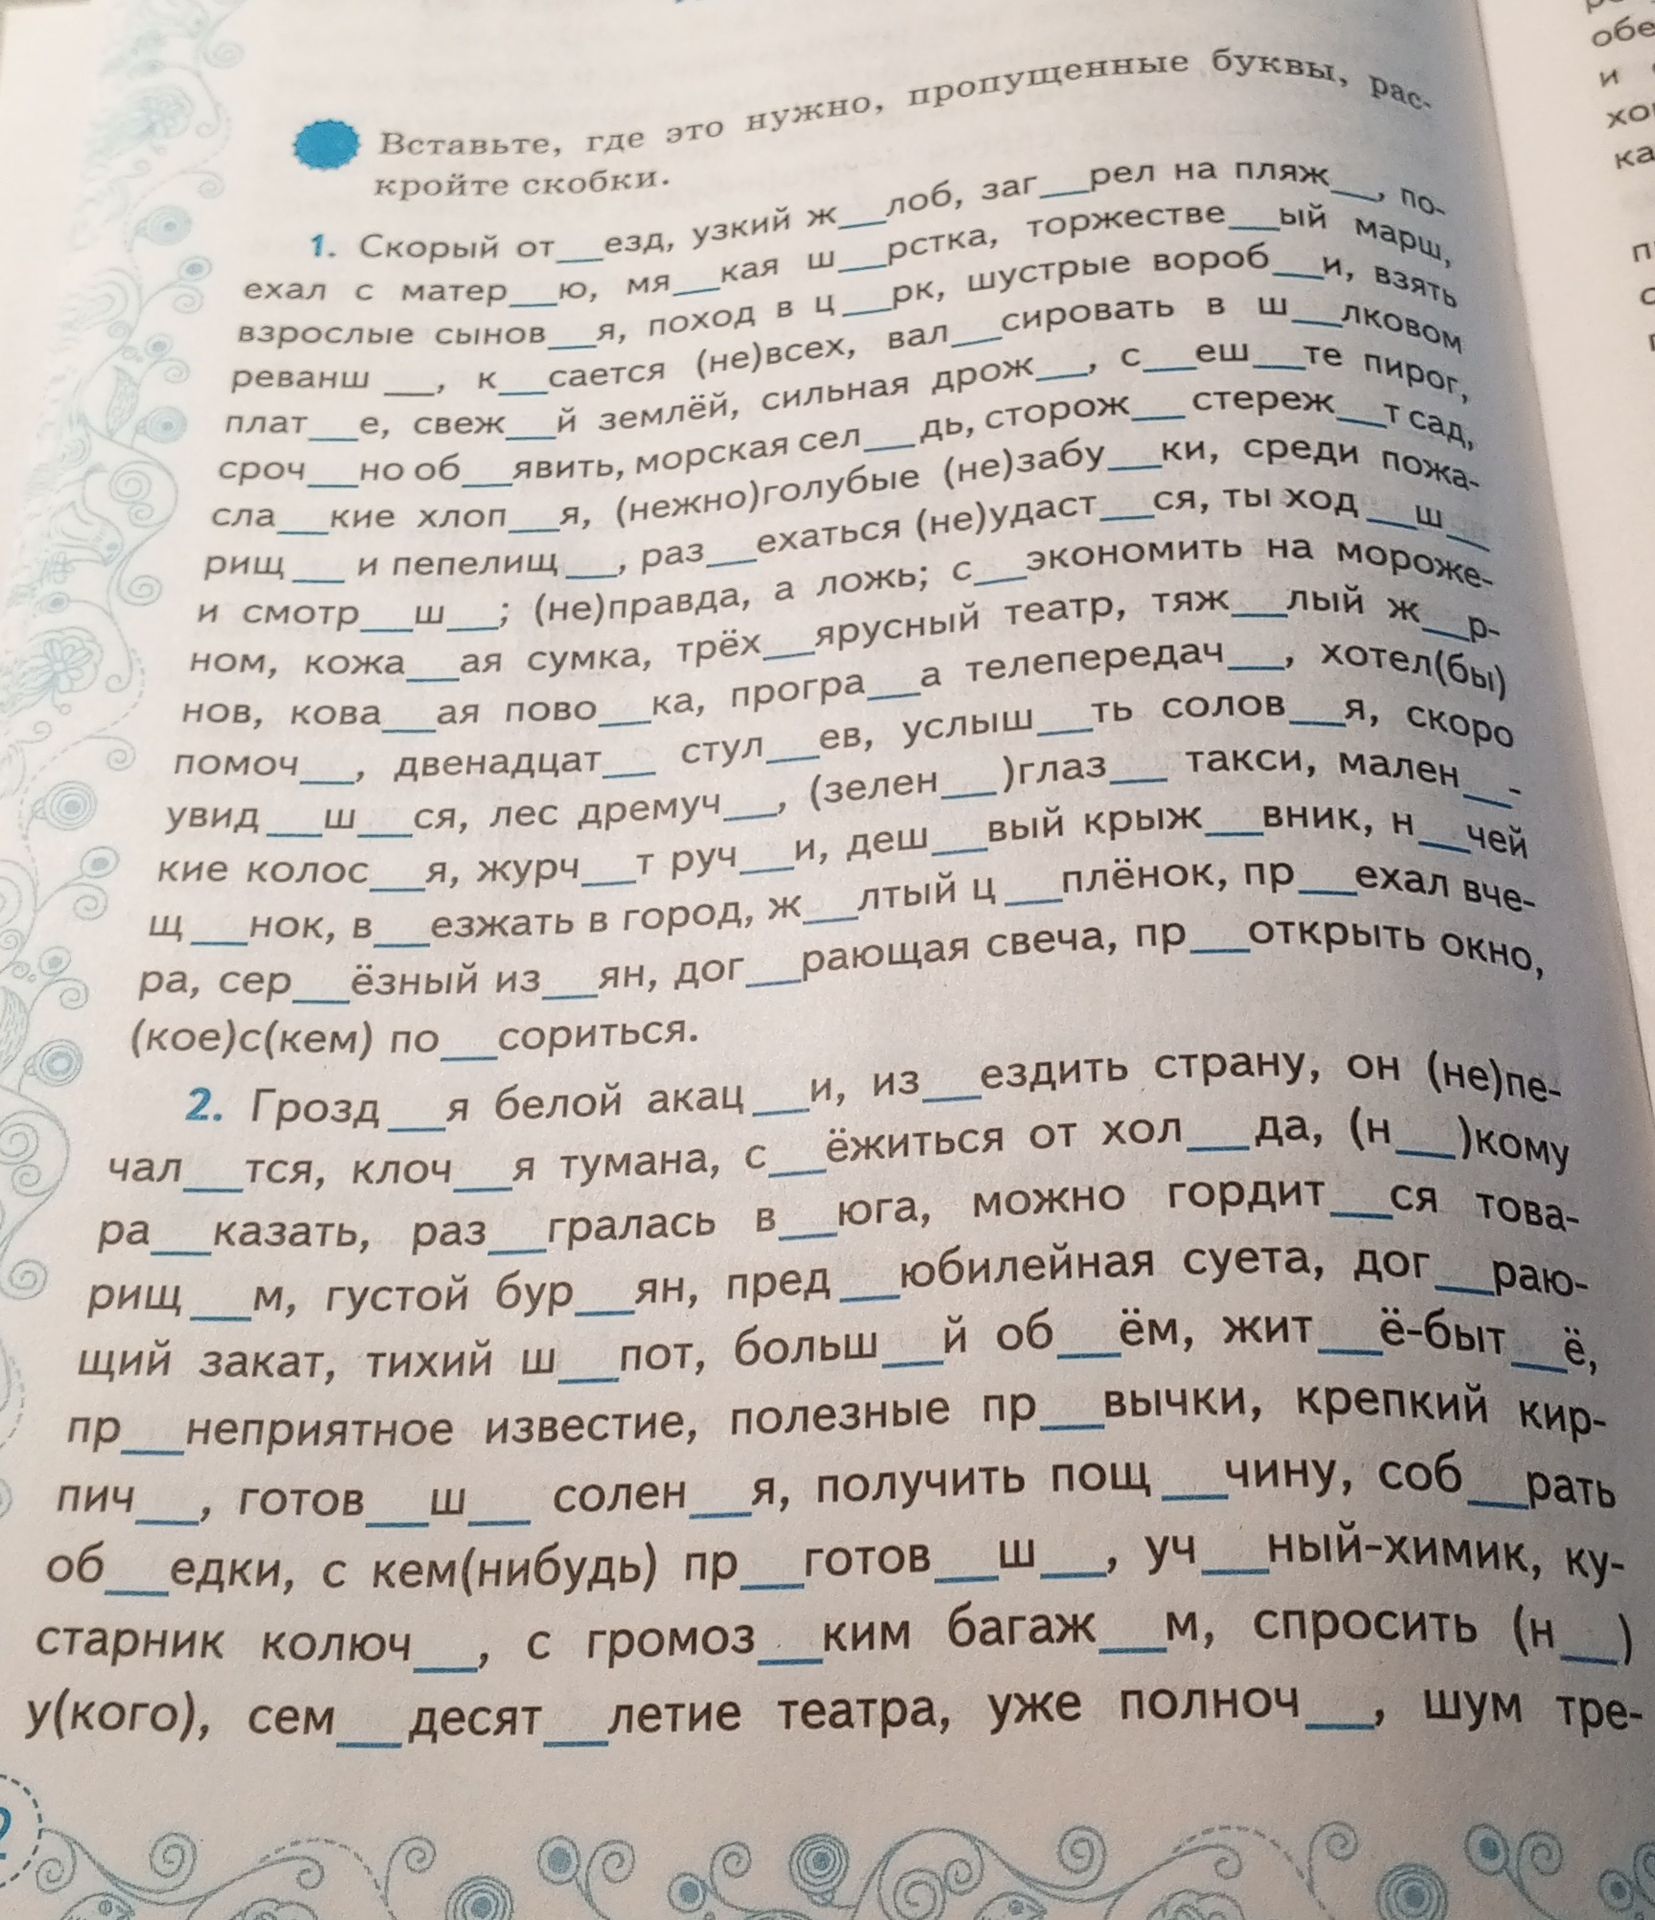 Вставьте, где это нужно, пропущенные буквы, рас-
кройте скобки.
1. Скорый от__езд, узкий ж__лоб, заг__рел на пляж__, по-
ехал с матер__ю, мя__кая ш__рстка, торжестве__ый марш,
взрослые сынов__я, поход в ц__рк, шустрые вороб__и, взять
реванш __, к__сается (не)всех, вал__сировать в ш__лковом
плат__е, свеж__й землёй, сильная дрож__, с__еш__те пирог,
сроч__но об__явить, морская сел__дь, сторож__ стереж__т сад,
сла__кие хлоп__я, (нежно)голубые (не)забу__ки, среди пожа-
рищ__ и пепелищ__, раз__ехаться (не)удаст__ся, ты ход__ш__
и смотр__ш__; (не)правда, а ложь; с__экономить на мороже-
ном, кожа__ая сумка, трёх__ярусный театр, тяж__лый ж__р-
нов, кова__ая пово__ка, програ__а телепередач__, хотел(бы)
помоч__, двенадцат__ стул__ев, услыш__ть солов__я, скоро
увид__ш__ся, лес дремуч__, (зелен__)глаз__ такси, мален__-
кие колос__я, журч__т руч__и, деш__вый крыж__вник, н__чей
щ__нок, в__езжать в город, ж__лтый ц__плёнок, пр__ехал вче-
ра, сер__ёзный из__ян, дог__рающая свеча, пр__открыть окно,
(кое)с(кем) по__сориться.
2. Грозд__я белой акац__и, из__ездить страну, он (не)пе-
чал__тся, клоч__я тумана, с__ёжиться от хол__да, (н__)кому
ра__казать, раз__гралась в__юга, можно гордит__ся това-
рищ__м, густой бур__ян, пред__юбилейная суета, дог__раю-
щий закат, тихий ш__пот, больш__й об__ём, жит__ё-быт__ё,
пр__неприятное известие, полезные пр__вычки, крепкий кир-
пич__, готов__ш__ солен__я, получить пощ__чину, соб__рать
об__едки, с кем(нибудь) пр__готов__ш__, уч__ный-химик, ку-
старник колюч__, с громоз__ким багаж__м, спросить (н__)
у(кого), сем__десят__летие театра, уже полноч__, шум тре-